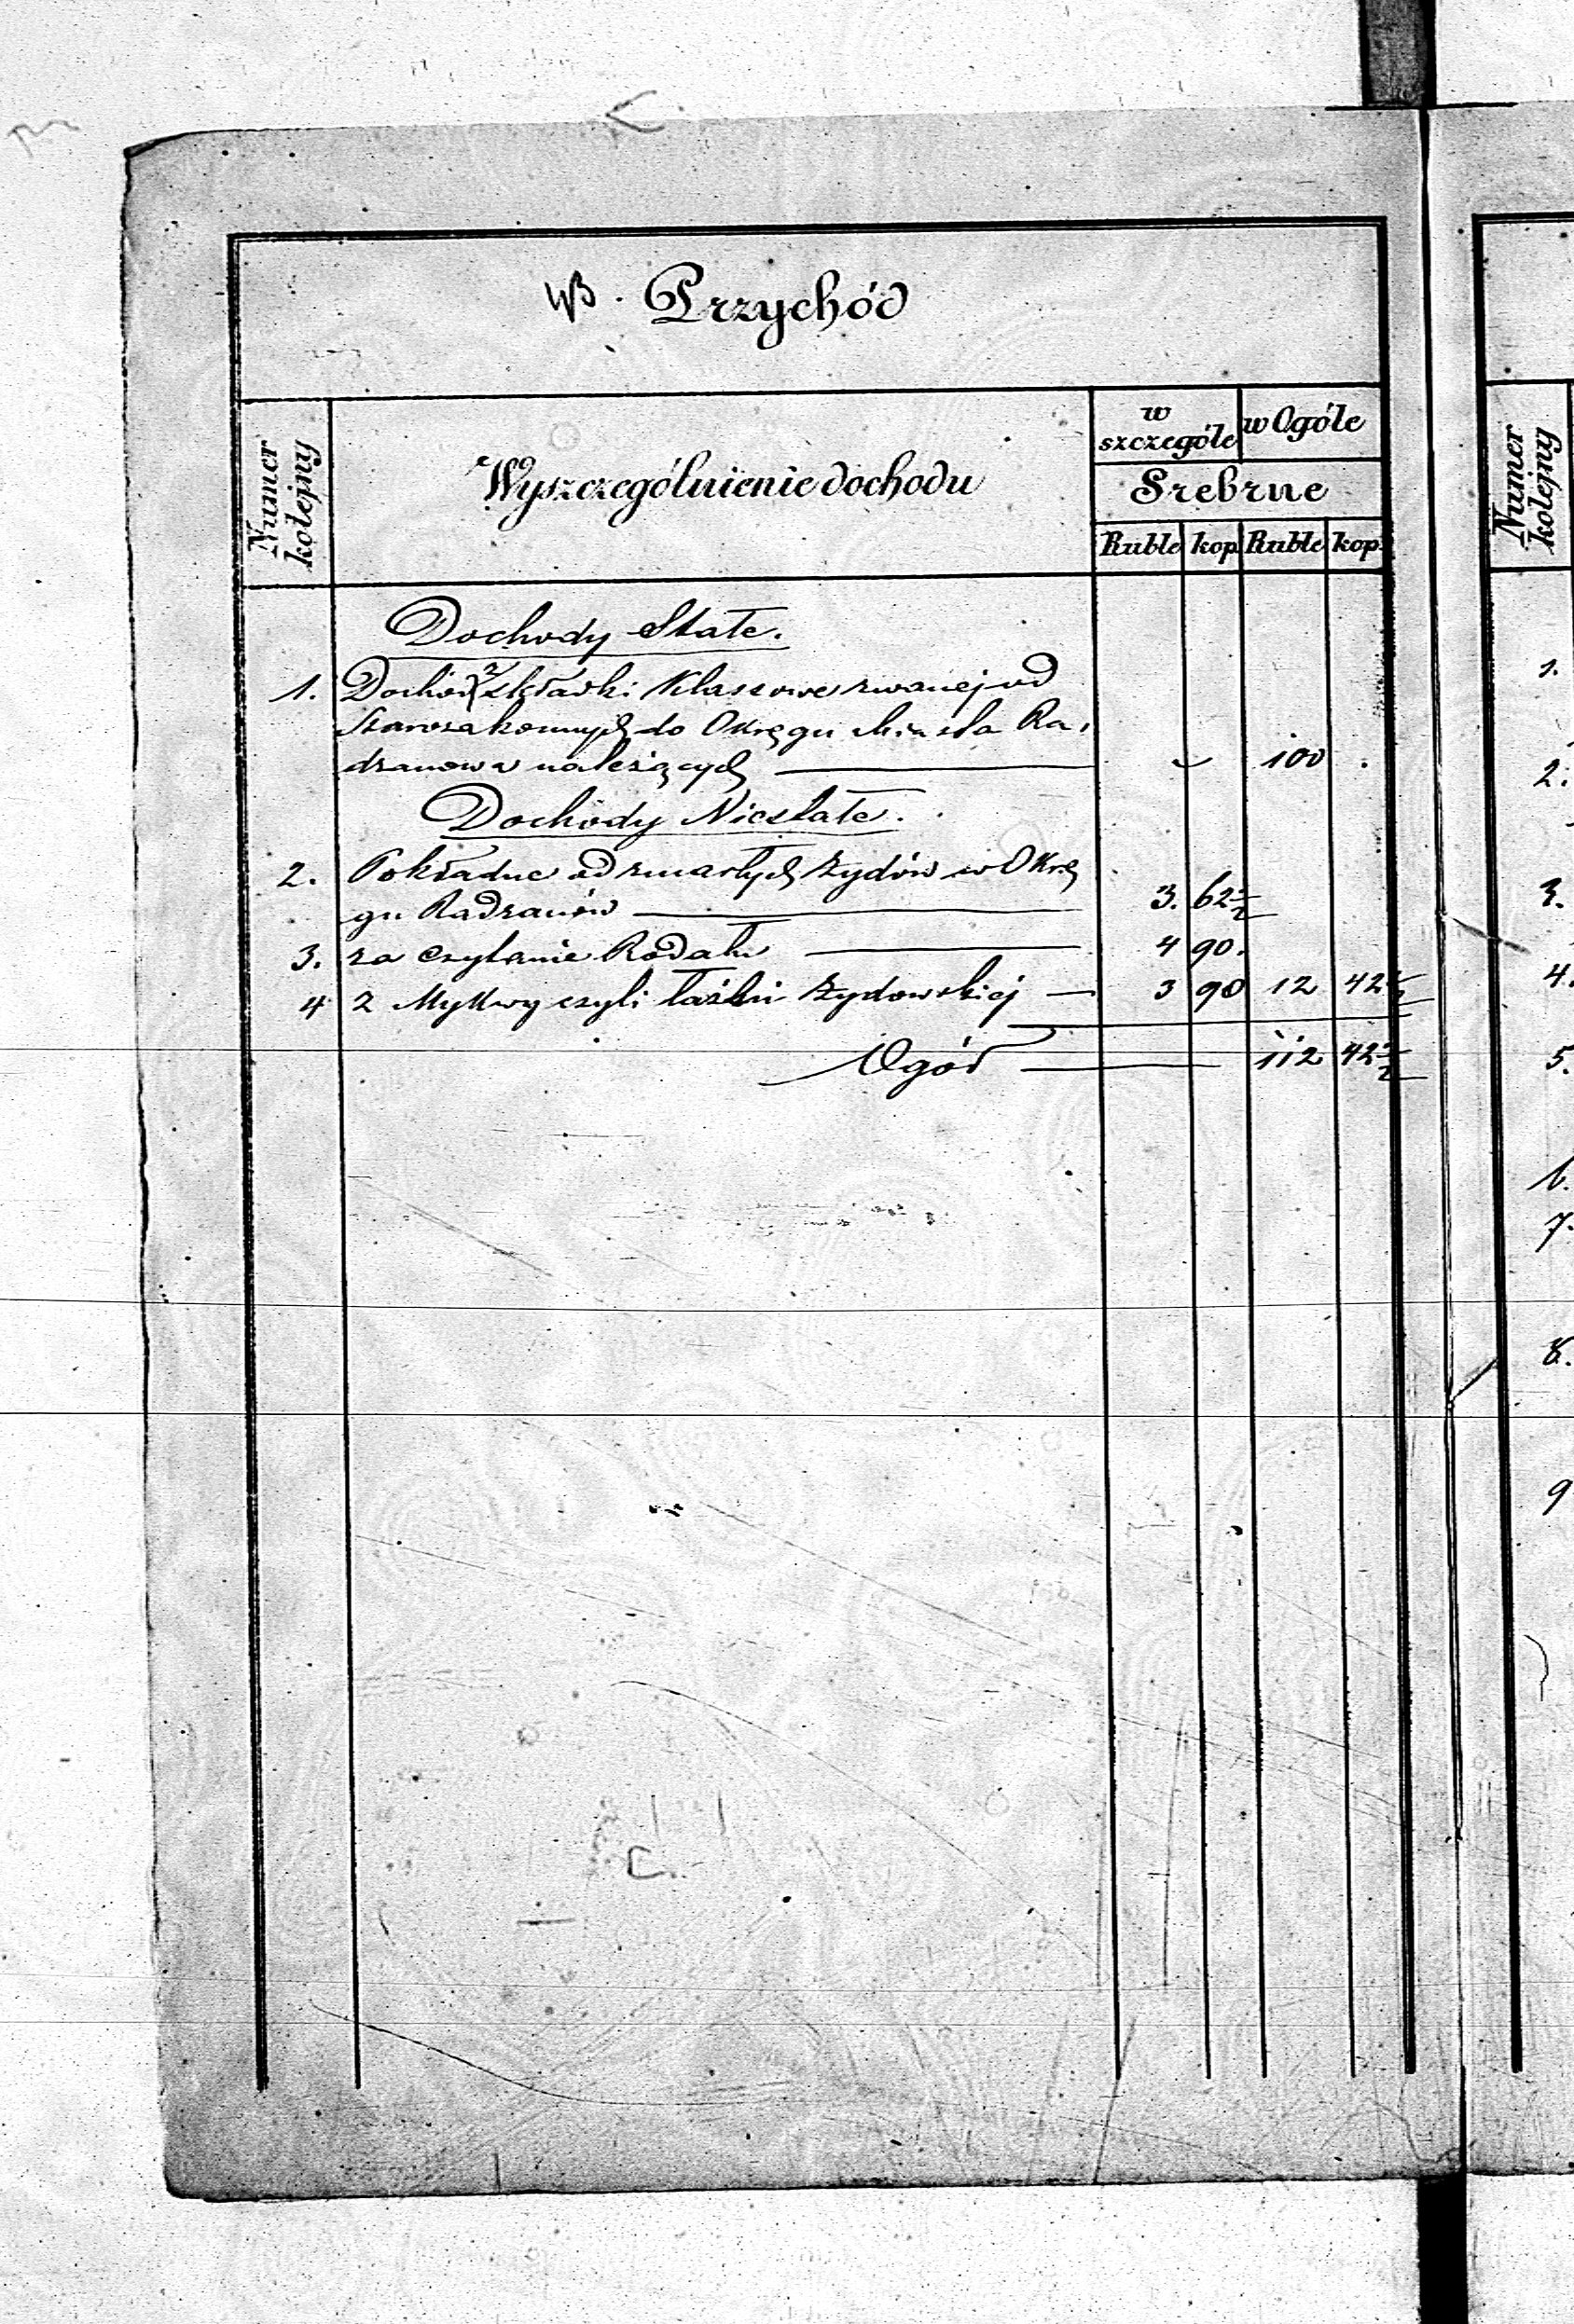 Przychód
Numer kolejny
Wyszczególnienie dochodu
w szczególe
w Ogóle
Srebrne
Ruble kop Ruble kop.
Dochody Stałe.
1. Dochód z składki Klassowe zwanej od
Starozakonnych do Okręgu Miasta Ra,
dzanowa należących 100
Dochody Niestałe.
2. Pokładne od zmarłych żydów w Okrę
gu Radzanów 3. 62 1/2
3. za czytanie Rodału 4 90.
4 z Mykwy czyli łaźni żydowskiej 3 90 12 42 1/2
Ogół 112 42 1/2
Numer kolejny
1.
2.
3.
4.
5.
6.
7.
8.
9